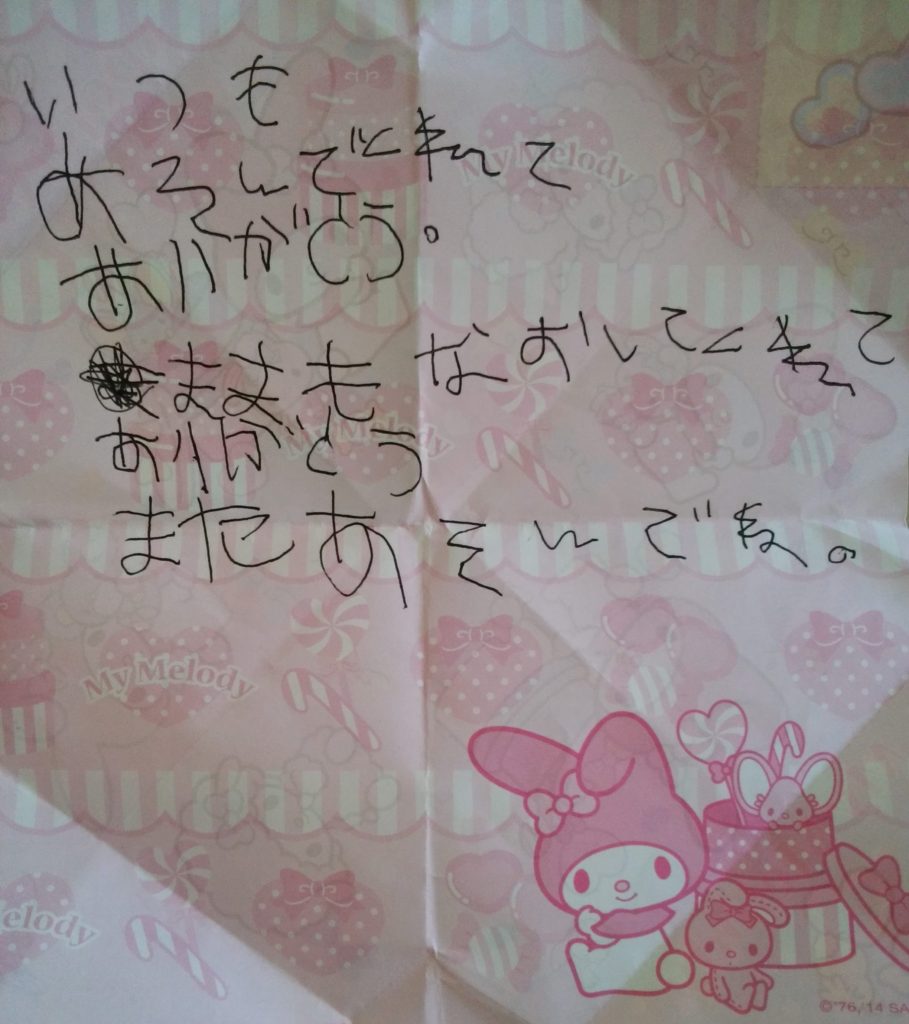 いつも
あそんでくれて
ありがとう。
ままも なおしてくれて
ありがとう
またあそんでね。
My Melody
My Melody
My Melody
Melody
©'76,'14 SA